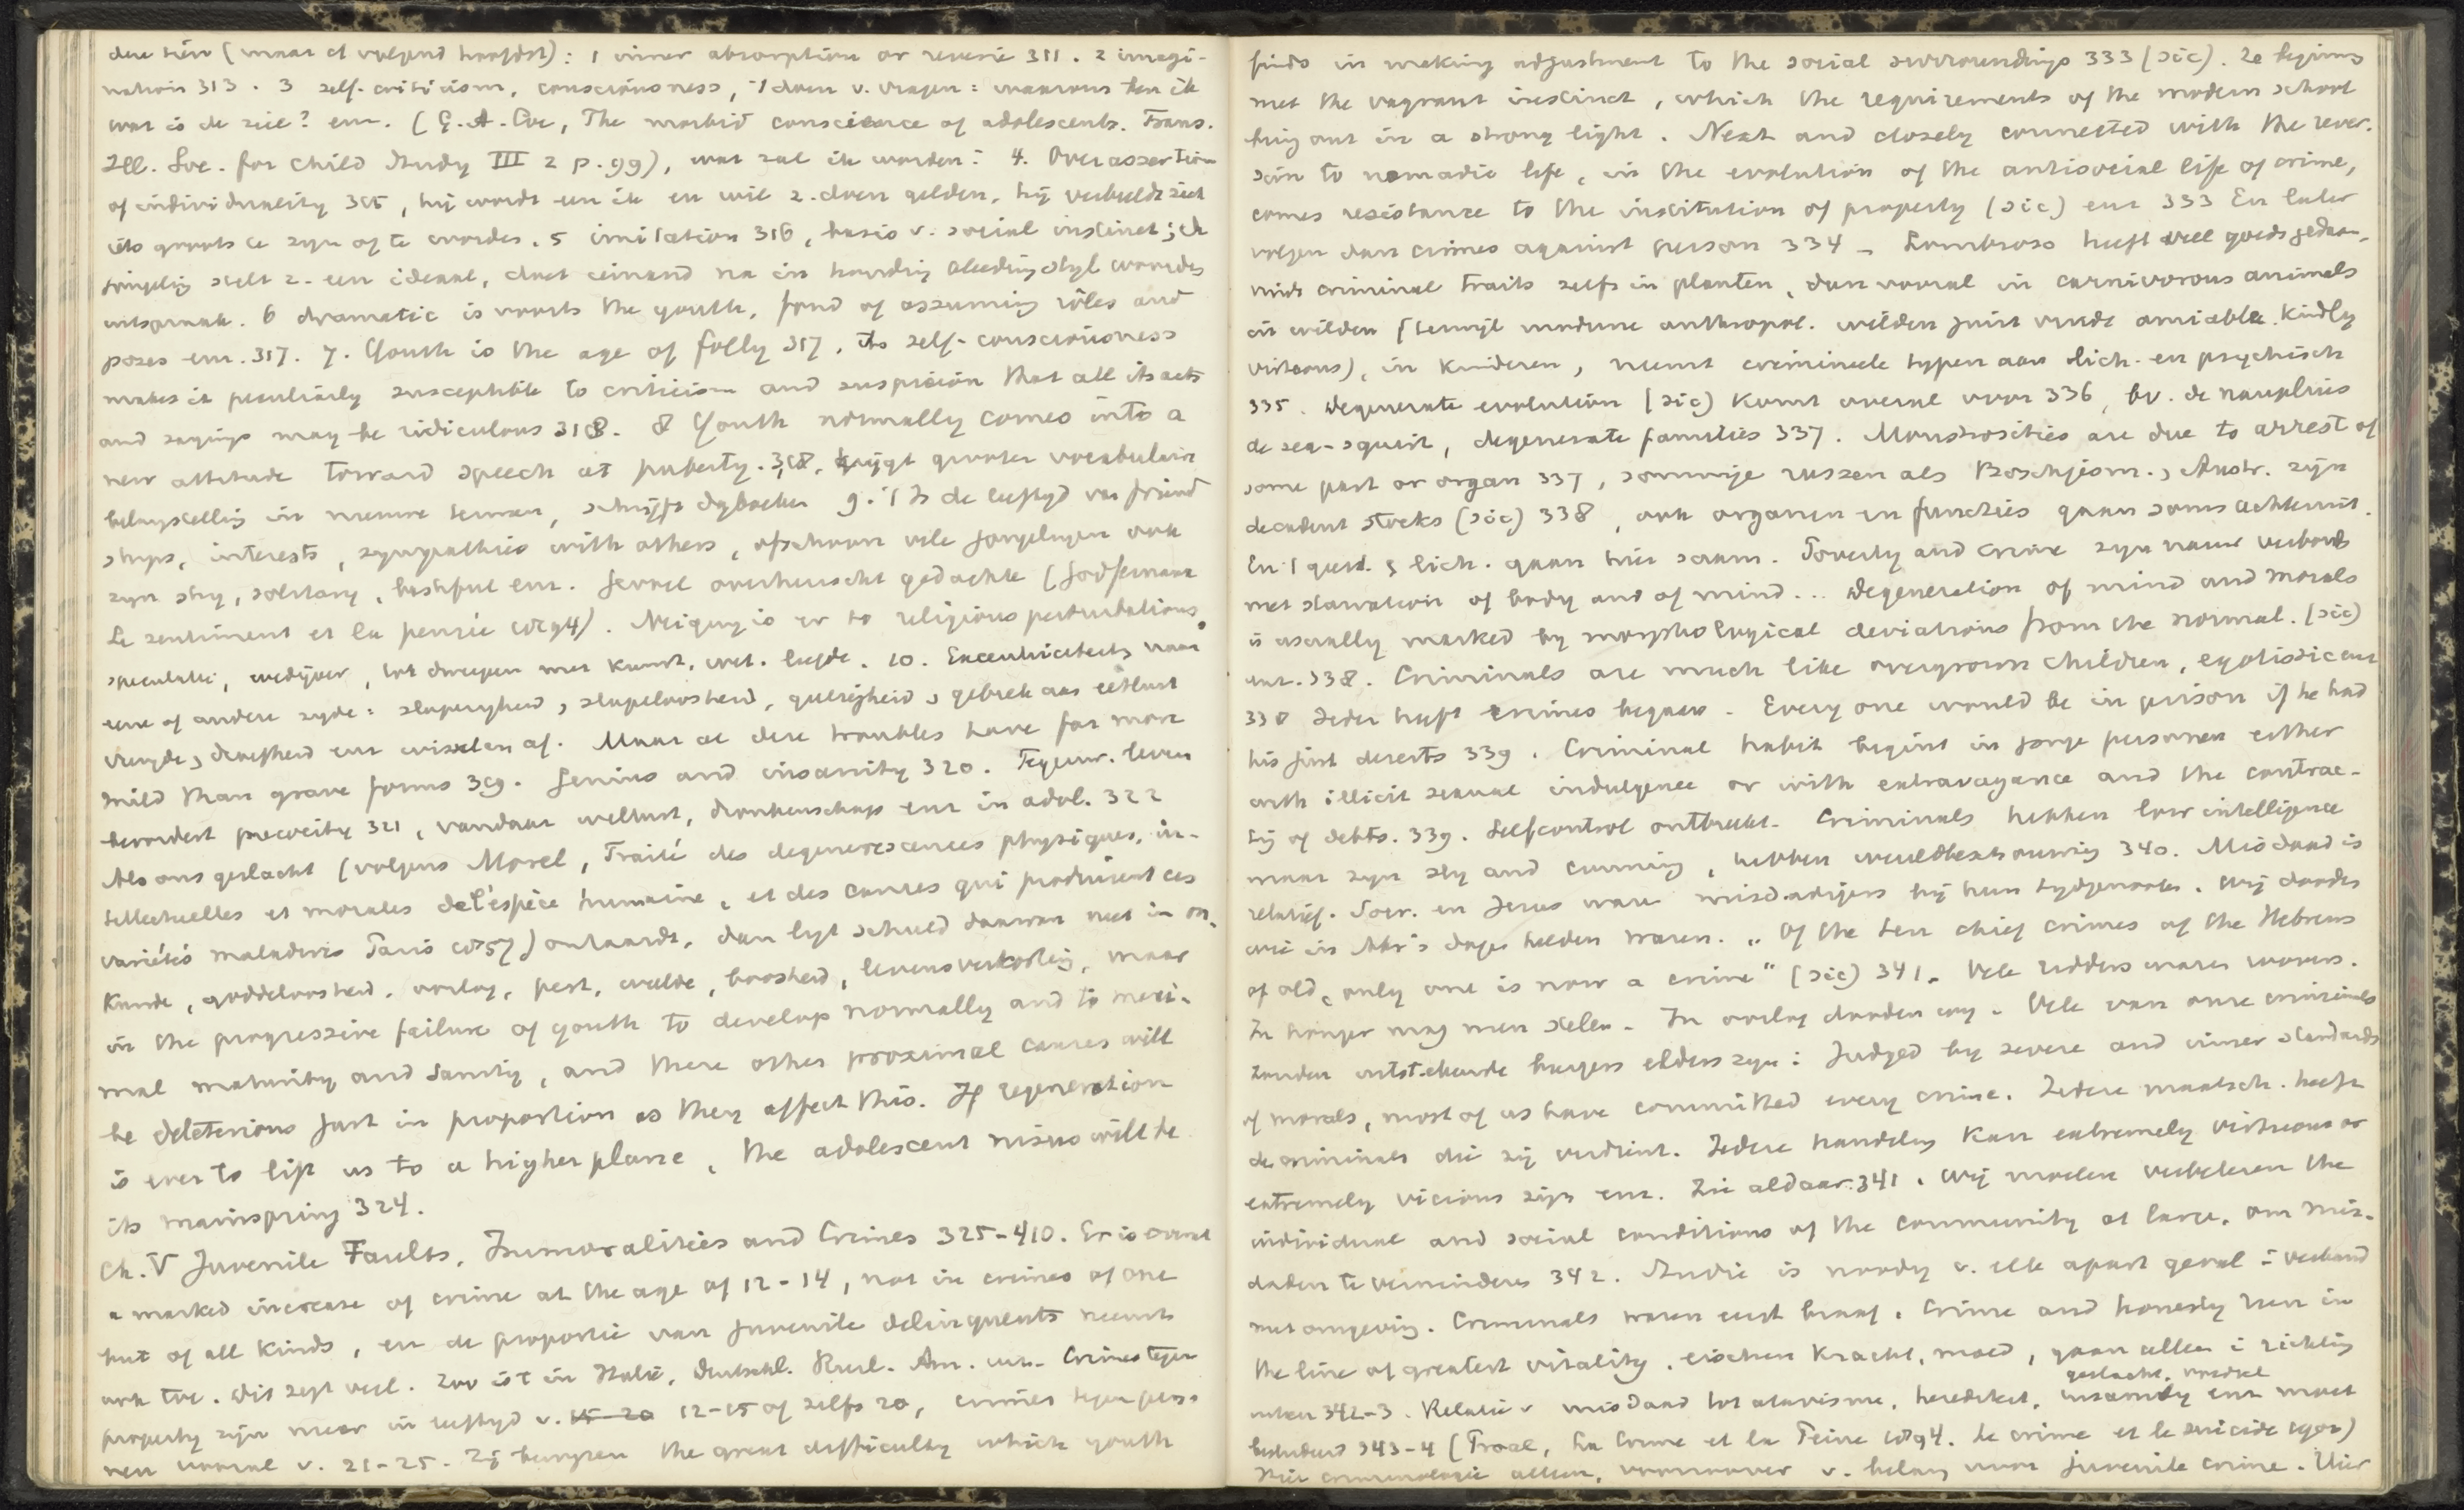 deze hier (maar cf volgend hoofdst): 1 inner absorption or reverie 311. 2 imagi-
nation 313. 3 self-criticism, consciousness, 't doen v. vragen: waarom ben ik
wat is de ziel? enz. (G.A. Coe, The morbid conscience of adolescents. Trans.
Ill. Soc. for Child Study III 2 p. 99), wat zal ik worden? 4. Overassertion
of individuality 315, hij wordt een ik en wil z. doen gelden, hij verbeeldt zich
iets groots te zyn of te worden. 5 imitation 316, basis v. social instinct; de
jongeling stelt z. een ideaal, doet iemand na in houding kleeding styl woorden
uitspraak. 6 dramatic is voorts the youth, fond of assuming rôles and
poses enz. 317. 7. Youth is the age of folly 317, its self-consciousness
makes it peculiarly susceptible to criticism and suspicion that all its acts
and sayings may be ridiculous 318. 8 Youth normally comes into a
new attitude toward speech at puberty. 318, krijgt grooter vocabulair
belangstelling in nieuwe termen, schrijft dagboeken 9. 't Is de leeftyd van friend
ships, interests, sympathies with others, ofschoon vele jongelingen ook
zyn shy, solitary, bashful enz. Gevoel overheerscht gedachte (Godfernaux
Le sentiment et la pensée 1894). Neiging is er to religious perturbations,
speculatie, wedijver, tot dwepen met kunst, wet. liefde. 10. Excentriciteits naar
eene of andere zyde: slaperigheid, slapeloosheid, gulzigheid, gebrek aan eetlust
vreugde, droefheid enz wisselen af. Maar al deze troubles have far more
mild than grave forms 319. Genius and insanity 320. Tegenw. leven
bevordert precocity 321, vandaar wellust, dronkenschap enz in adol. 322
Als ons geslacht (volgens Morel, Traité des dégénérescences physiques, in-
tellectuelles et morales de l'éspèce humaine, et des causes qui produisent ces
variétés maladives Paris 1857) ontaardt, dan ligt schuld daarvan niet in on-
kunde, goddeloosheid, oorlog, pest, weelde, boosheid, levensverkorting, maar
in the progressive failure of youth to develop normally and to maxi-
mal maturity and sanity, and these other proximal causes will
be deleterious just in proportion as they affect this. If regeneration
is ever to lift us to a higher plane, the adolescent nisus will be
its mainspring 324.
Ch. V Juvenile Faults, Immoralities and Crimes 325-410. Er is overal
a marked increase of crime at the age of 12-14, not in crimes of one
but of all kinds, en de proportie van juvenile delinquents neemt
ook toe. Dit zegt veel. Zoo is 't in Italië, Duitschl. Rusl. Am. enz. Crimes tegen
property zijn meer in leeftyd v. 15-20 12-15 of zelfs 20, crimes tegen perso
nen vooral v. 21-25. Zij bewyzen the great difficulty which youth
finds in making adjustment to the social surroundings 333 (sic). Ze beginnen
met the vagrant instinct, which the requirements of the modern school
bring out in a strong light. Next and closely connected with the rever-
sion to nomadic life, in the evolution of the antisocial life of crime,
comes resistance to the institution of property (sic) enz 333 En later
volgen dan crimes against person 334 - Lombroso heeft veel goeds gedaan,
vindt criminal traits zelfs in planten, dan vooral in carnivorous animals
in wilden (terwijl moderne anthropol. wilden juist vindt amiable kindly
virtuous), in kinderen, neemt crimineele typen aan lich. en psychisch
335. Degenerate evolution (sic) komt overal voor 336, bv. de nauplius
de sea-squirt, degenerate families 337. Monstrosities are due to arrest of
some part or organ 337, sommige rassen als Boschjesm., Austr. zijn
decadent stocks (sic) 338, ook organen en functies gaan soms achteruit.
En 't geest. & lich. gaan hier saam. Poverty and crime zyn nauw verbonden
met starvation of body and of mind... Degeneration of mind and morals
is usually marked by morphological deviations from the normal. (sic)
enz. 338. Criminals are much like overgrown children, egotistic enz
338 Ieder heeft crimes begaan - Every one would be in prison if he had
his just deserts 339. Criminal habit begint in jonge personen either
with illicit sexual indulgence or with extravagance and the contrac-
ting of debts. 339. Selfcontrol ontbreekt. Criminals hebben low intelligence
maar zyn sly and cunning, hebben wereldbeschouwing 340. Misdaad is
relatief. Socr. en Jezus waren misdadigers bij hun tydgenooten. Wij dooden
wie in Abr's dagen helden waren. „Of the ten chief crimes of the Hebrews
of old, only one is now a crime" (sic) 341. Vele ridders waren roovers.
In honger mag men stelen. In oorlog dooden enz. Vele van onze criminals
zouden uitstekende burgers elders zyn: Judged by severe and inner standards
of morals, most of us have committed every crime. Iedere maatsch. heeft
de criminals die zij verdient. Iedere handeling kan extremely virtuous or
extremely vicious zijn enz. Zie aldaar 341. Wij moeten verbeteren the
individual and social conditions of the community at large, om mis-
daden te verminderen 342. Studie is noodig v. elk apart geval in verband
met omgeving. Criminals waren eerst braaf. Crime and honesty run in
the line of greatest vitality, eischen kracht, moed, gaan alleen in richting
uiteen 342-3. Relatie v misdaad tot atavisme, herediteit, geslacht, voedsel insanity enz moet
bestudeerd 343-4 (Proal, Le Crime et la Peine 1894. Le crime et le suicide 1900)
Hier criminologie alleen, voorzoover v. belang voor juvenile crime. Hier